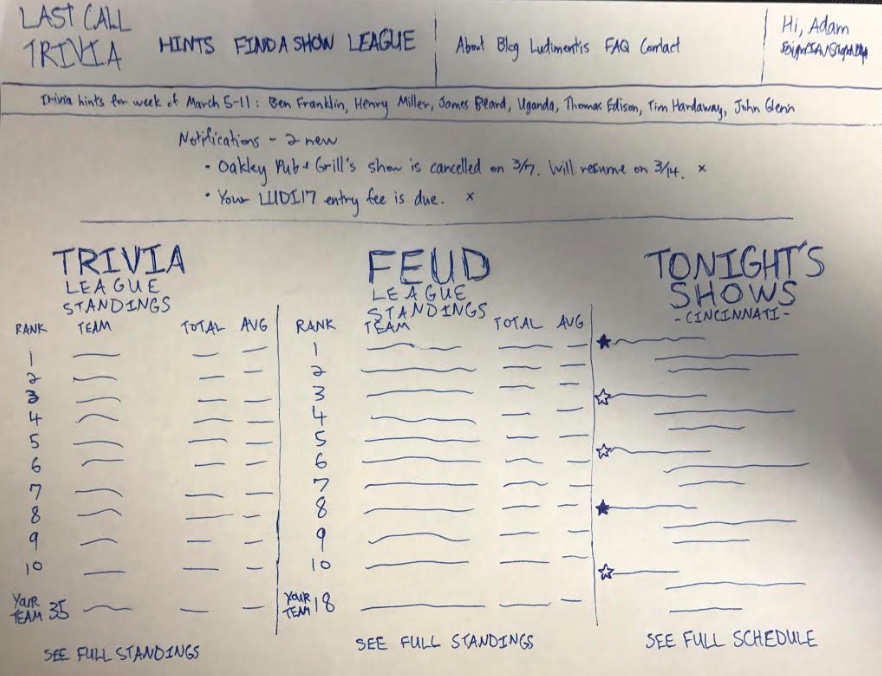 LAST CALL
TRIVIA
HINTS FIND A SHOW LEAGUE
About Blog Ludimentis FAQ Contact
Hi, Adam
Trivia hints for week of March 5-11: Ben Franklin, Henry Miller, James Beard, Uganda, Thomas Edison, Tim Hardaway, John Glenn
Notifications - 2 new
• Oakley Pub + Grill's show is cancelled on 3/7. Will resume on 3/14. x
• Your LUDI17 entry fee is due. x
TRIVIA
LEAGUE
STANDINGS
RANK TEAM TOTAL AVG
1
2
3
4
5
6
7
8
9
10
YOUR
TEAM 35
SEE FULL STANDINGS
FEUD
LEAGUE
STANDINGS
RANK TEAM TOTAL AVG
1
2
3
4
5
6
7
8
9
10
YOUR
TEAM 18
SEE FULL STANDINGS
TONIGHT'S
SHOWS
- CINCINNATI -
SEE FULL SCHEDULE